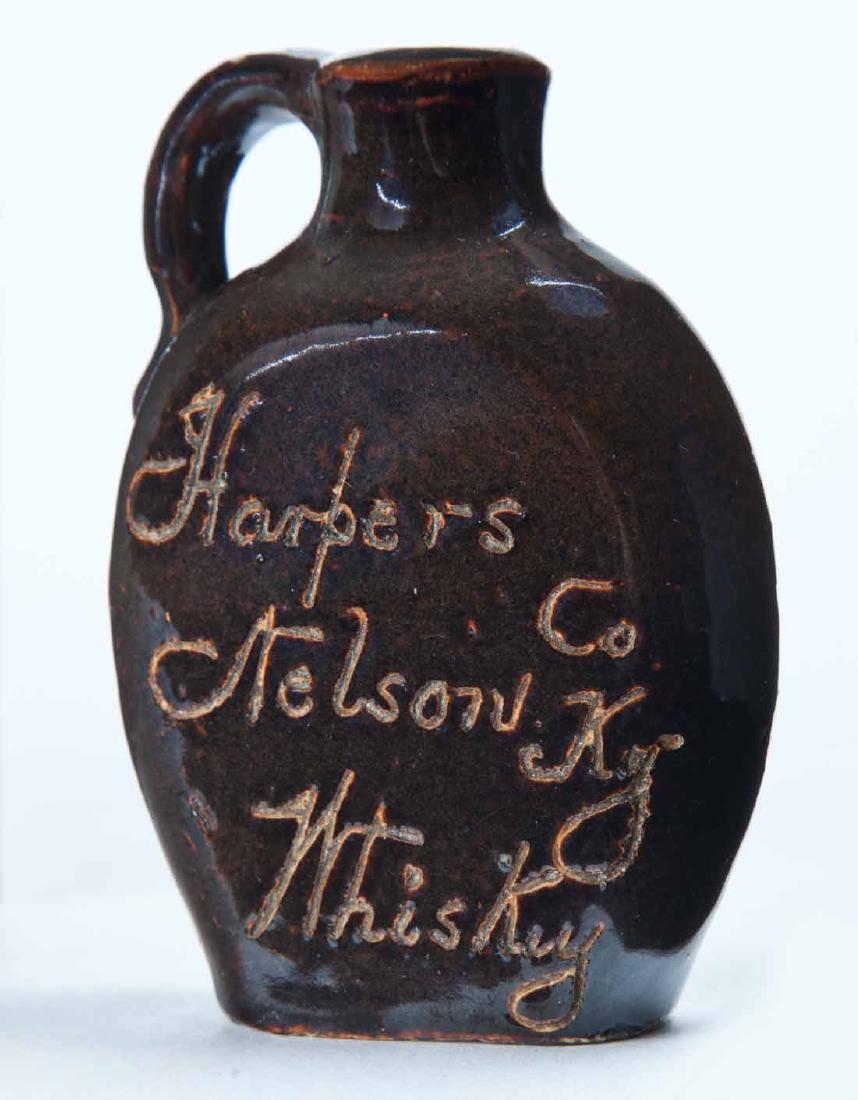 Harpers
Nelson Co Ky
Whiskey